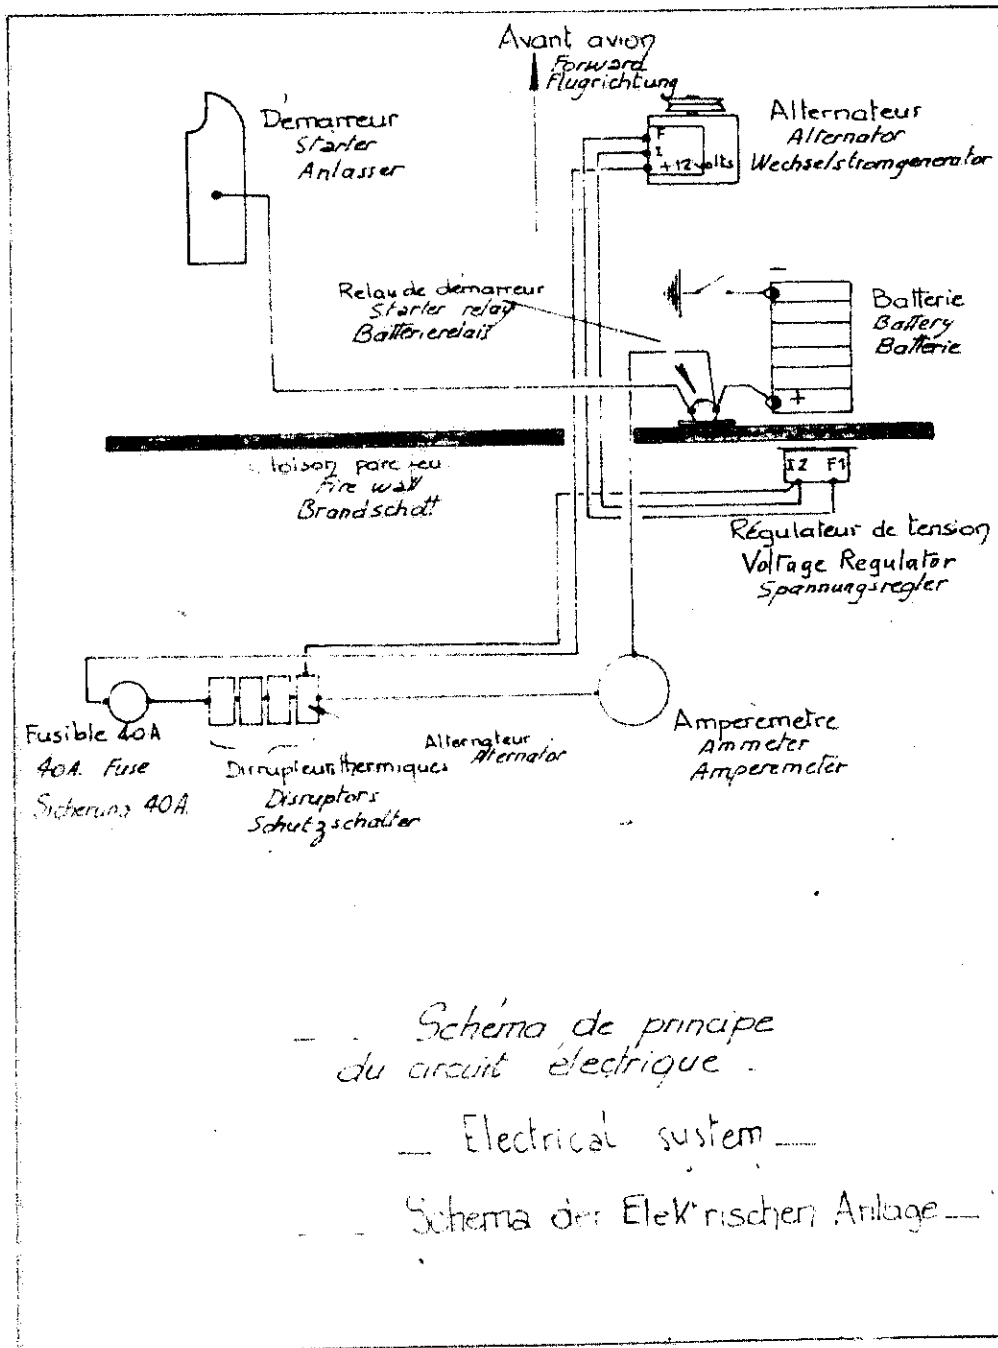 Avant avion
Forward
Flugrichtung
Démarreur
Starter
Anlasser
F
I
+12 volts
Alternateur
Alternator
Wechselstromgenerator
Relay de démarreur
Starter relay
Batterierelais
−
+
Batterie
Battery
Batterie
loison pare feu
Fire wall
Brandschott
I2 F1
Régulateur de tension
Voltage Regulator
Spannungsregler
Fusible 40A
40A. Fuse
Sicherung 40A.
Disrupteurs thermiques
Disruptors
Schutzschalter
Alternateur
Alternator
Amperemetre
Ammeter
Amperemeter
Schéma de principe
du circuit électrique.
Electrical system
Schema der Elektrischen Anlage